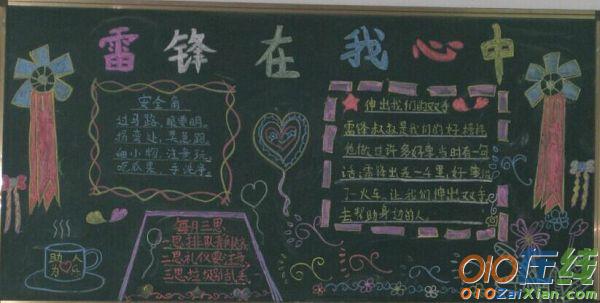 雷锋在我心中
安全角
过马路，眼要明，
拐弯处，莫急跑，
细小物，注意玩。
吃瓜果，手洗净。
伸出我们的双手
雷锋叔叔是我们的好榜样
他做过许多好事当时有一句
话：雷锋出差一千里，好事做
了一火车，让我们伸出双手
去帮助身边的人。
每月三思
一思排队
二思礼仪
三思垃圾别乱丢
助人
为 乐
010在线
010ZaiXian.com